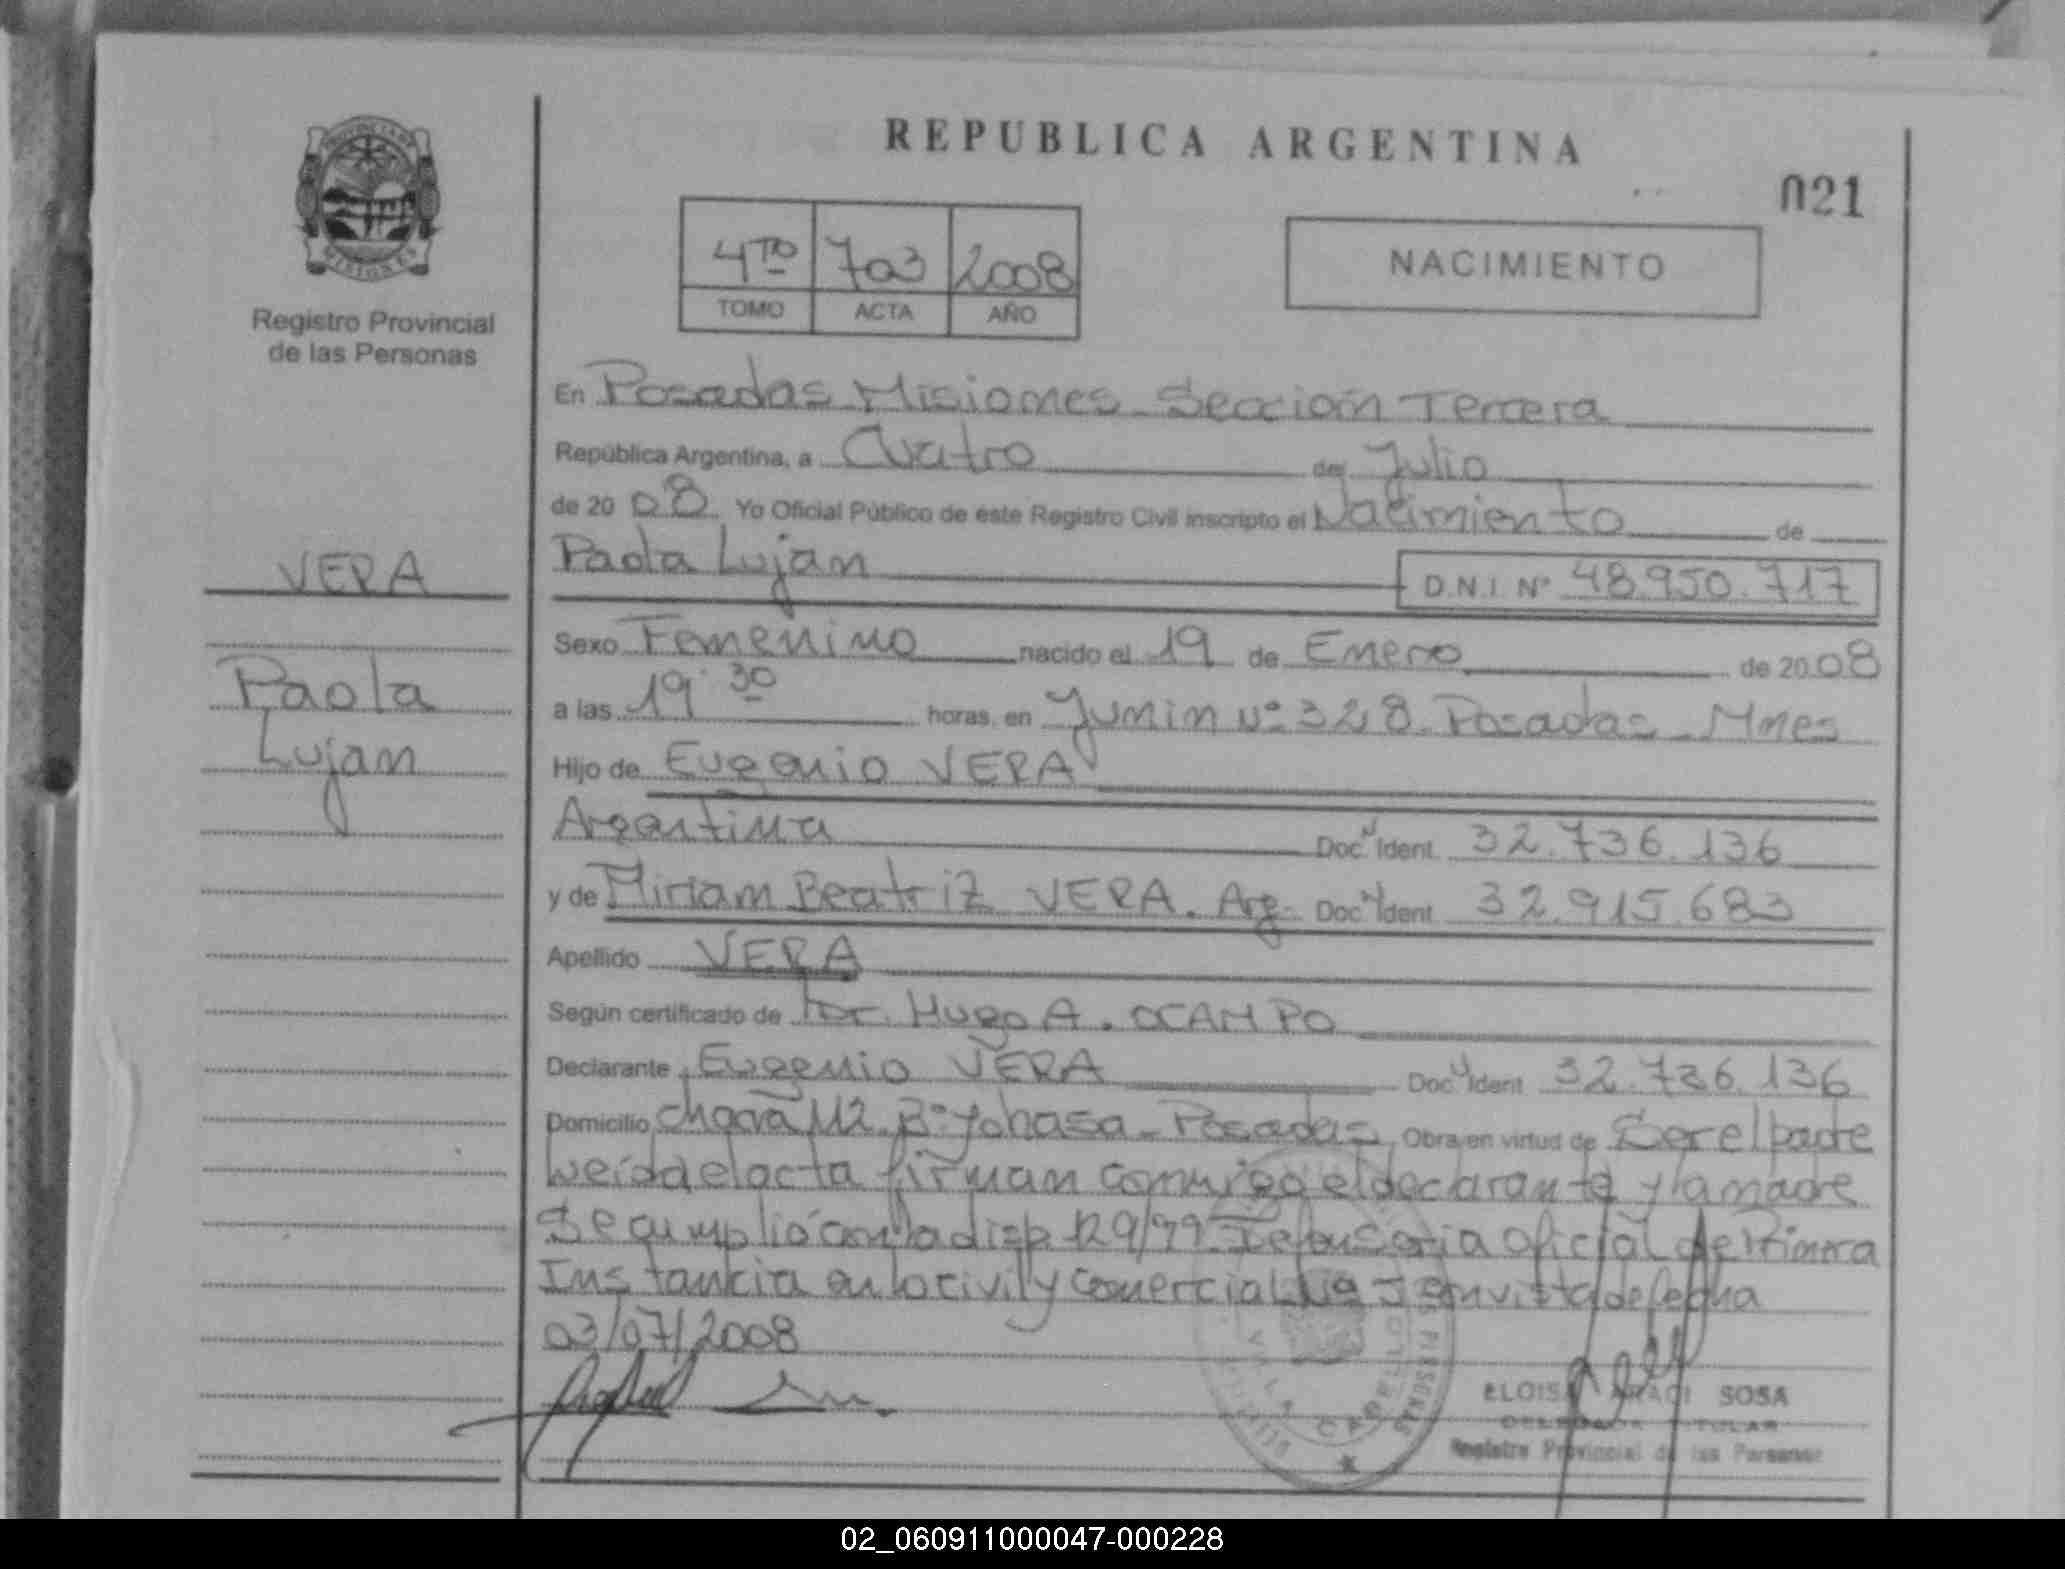 REPUBLICA ARGENTINA
021
4TO 703 2008
TOMO ACTA AÑO
NACIMIENTO
PROVINCIA DE
MISIONES
Registro Provincial
de las Personas
VERA
Paola
Lujan
En Posadas Misiones - Sección Tercera
República Argentina, a Cuatro de Julio
de 2008 Yo Oficial Público de este Registro Civil inscripto el Nacimiento de
Paola Lujan D.N.I. Nº 48.950.717
Sexo Femenino nacido el 19 de Enero de 2008
a las 19 30 horas, en Junin Nº 328. Posadas - Mnes
Hijo de Eugenio VERA
Argentina Doc Ident. 32.736.136
y de Miriam Beatriz VERA. Arg. Doc Ident. 32.915.683
Apellido VERA
Según certificado de Dr. Hugo A. OCAMPO
Declarante Eugenio VERA Doc Ident. 32.736.136
Domicilio Chacra 112. Bº Yohasa - Posadas Obra en virtud de Ser el padre
Leída el acta firman conmigo el declarante y la madre
Se cumplió con la disp. 129/99 Defensoria oficial de Primera
Instancia en lo civil y comercial vista de fecha
03/07/2008
ELOISA ARACI SOSA
DELEGADA TITULAR
Registro Provincial de las Personas
02_060911000047-000228